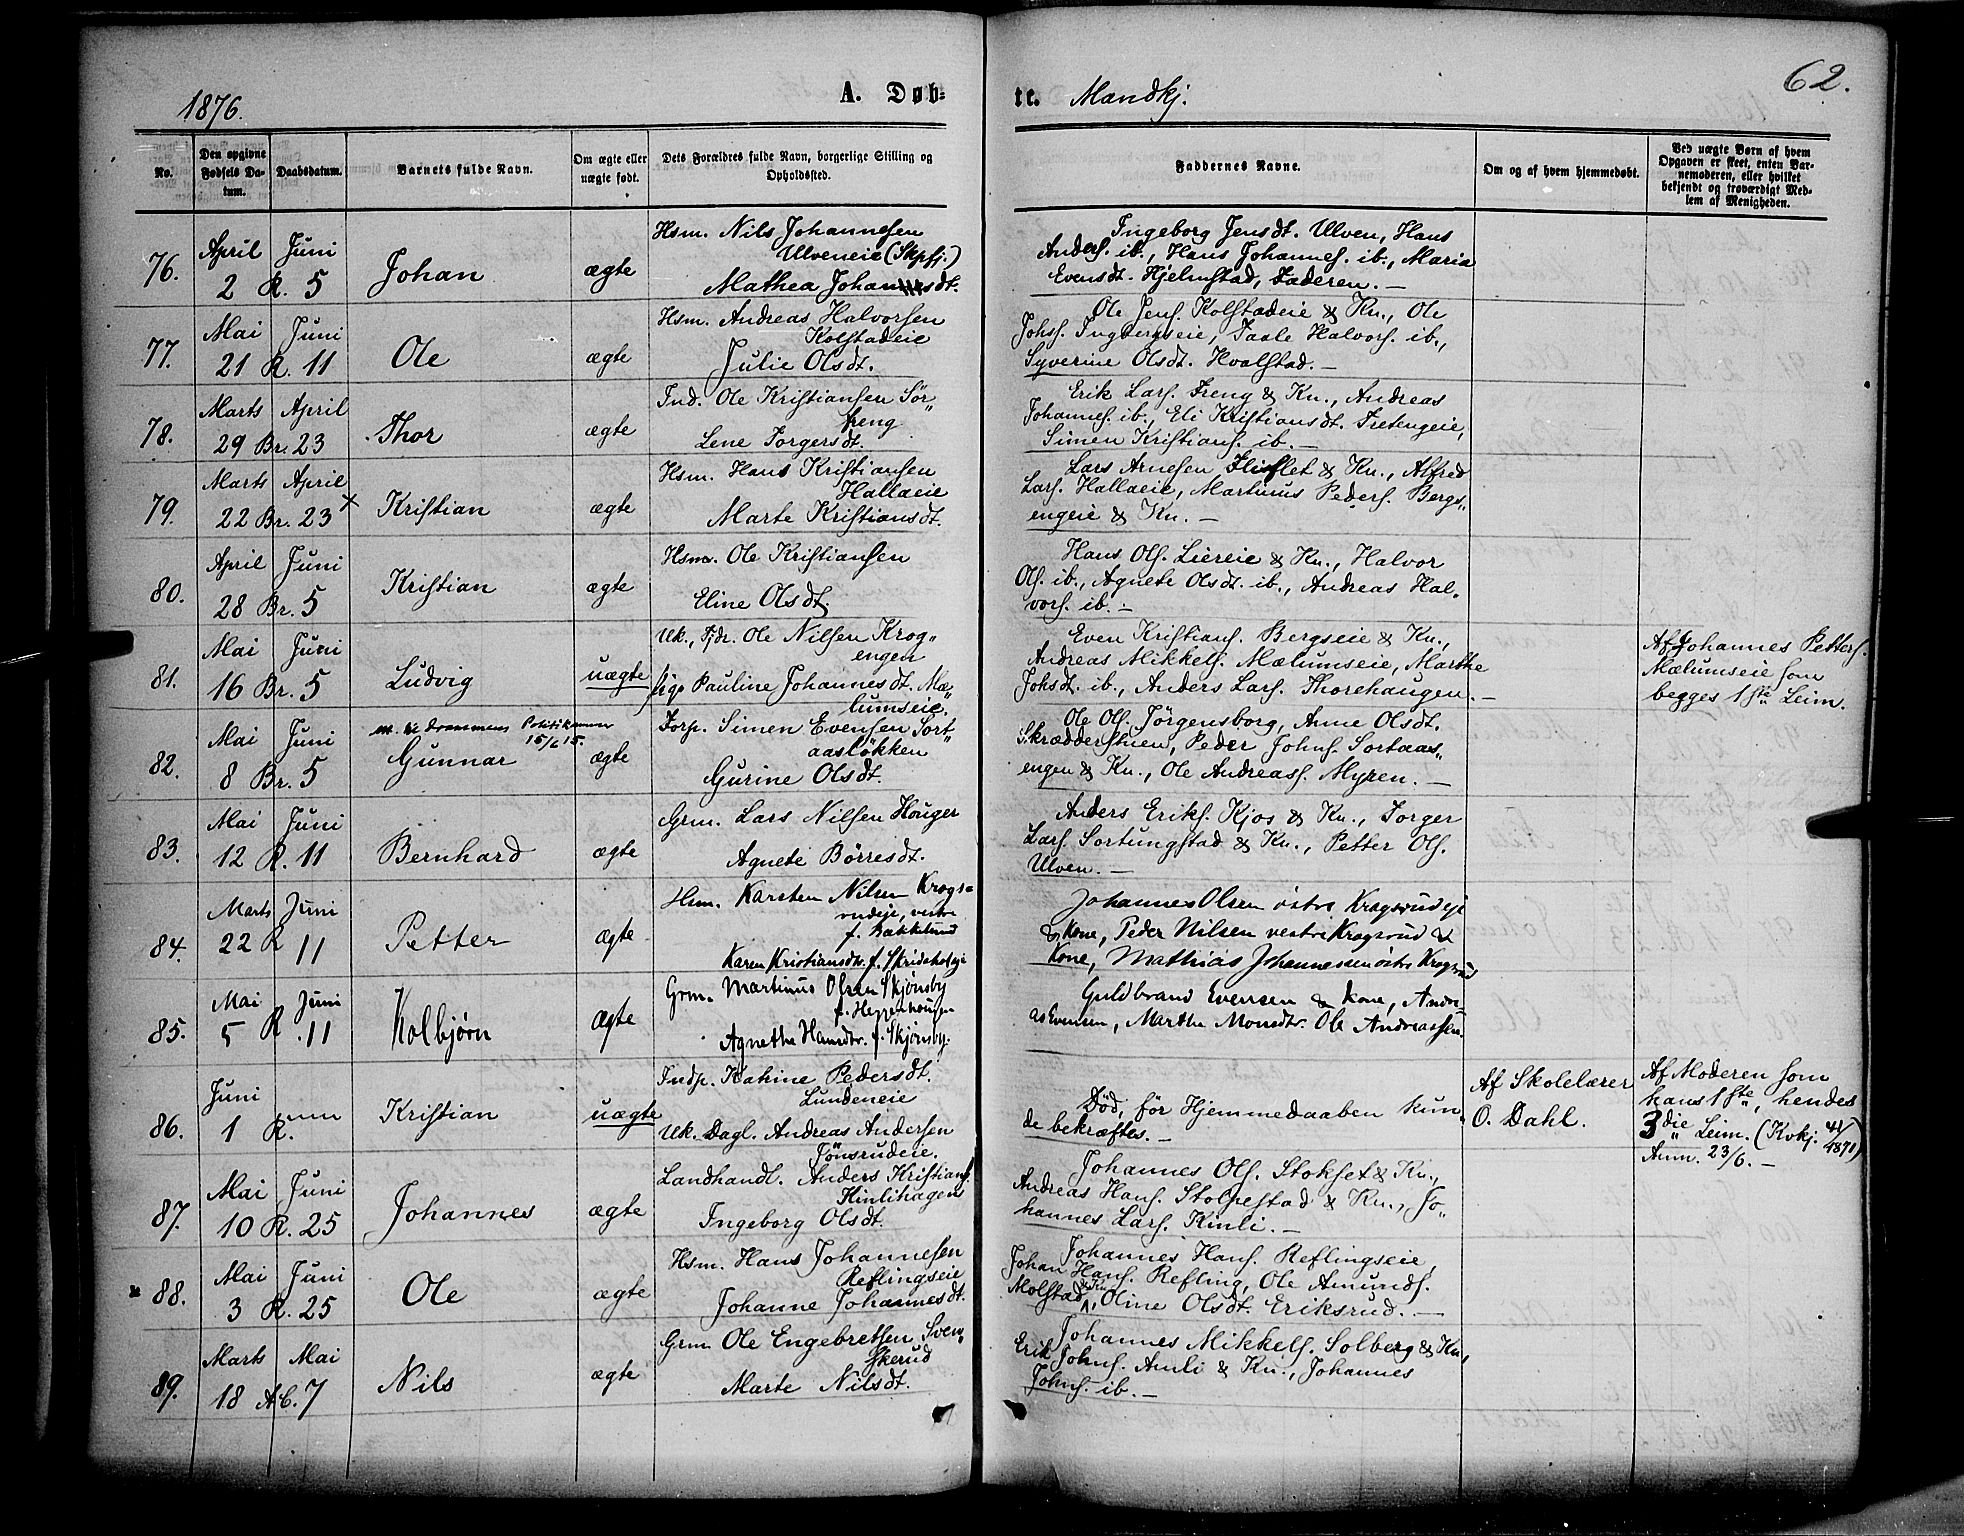 1876.
A. Døb-
te. Mandkj.
62.
No.
Den opgivne Fødsels Da-
tum.
Daabsdatum.
Barnets fulde Navn.
Om ægte eller uægte født.
Dets Forældres fulde Navn, borgerlige Stilling og Opholdssted.
Faddernes Navne.
Om og af hvem hjemmedøbt.
Ved uægte Børn af hvem
Opgaven er skeet, enten Bar-
nemoderen, eller hvilket
bekjendt og troværdigt Med-
lem af Menigheden.
76. April 2 Juni R. 5 Johan ægte
Hsm. Nils Johannesen
Ulveneie (Skpfj.)
Mathea Johannesdt.
Ingeborg Jensdt. Ulven, Hans
Anders. ib., Hans Johannes. ib., Maria
Evensdt. Hjelmstad, Faderen. —
77. Mai 21 Juni R. 11 Ole ægte
Hsm. Andreas Halvorsen
Kolstadeie
Julie Olsdt.
Ole Jens. Kolstadeie & Kn., Ole
Johs. Ingbergseie, Paale Halvors. ib.,
Syverine Olsdt. Hvalstad. —
78. Marts 29 April Br. 23 Thor ægte
Ind. Ole Kristiansen Sör„
freng
Lene Torgersdt.
Erik Lars. Freng & Kn., Andreas
Johannes. ib., Eli Kristiansdt. Fretengeie,
Simen Kristians. ib. —
79. Marts 22 April Br. 23 x Kristian ægte
Hsm. Hans Kristiansen
Hallaeie
Marte Kristiansdt.
Lars Arnesen Fliflet & Kn., Alfred
Lars. Hallaeie, Martinus Peders. Bergs„
engeie & Kn. —
80. April 28 Juni Br. 5 Kristian ægte
Hsm. Ole Kristiansen
Eline Olsdt.
Hans Ols. Liereie & Kn., Halvor
Ols. ib., Agnete Olsdt. ib., Andreas Hal„
vors. ib. —
81. Mai 16 Juni Br. 5 Ludvig uægte
Uk., Tjdr. Ole Nilsen Krog„
engen
Pige Pauline Johannesdt. Mæ„
lumseie.
Even Kristians. Bergseie & Kn.,
Andreas Mikkels. Mælumseie, Marthe
Johsdt. ib., Anders Lars. Thorehaugen. —
Af Johannes Petters.
Mælumseie som
begges 1ste Leim.
82. Mai 8 Juni Br. 5
Drammens Politikammer
15/6 15.
Gunnar ægte
Forp. Simen Evensen Sort„
aasløkken
Gurine Olsdt.
Ole Ols. Jörgensborg, Anne Olsdt.
Skrædderstuen, Peder Johns. Sortaas„
engen & Kn., Ole Andreass. Myren. —
83. Mai 12 Juni R. 11 Bernhard ægte
Grm. Lars Nilsen Houger
Agnete Börresdt.
Anders Eriks. Kjos & Kn., Torger
Lars. Sortungstad & Kn., Petter Ols.
Ulven. —
84. Marts 22 Juni R 11 Petter ægte
Hsm. Karsten Nilsen Krogs-
rudeje, vestre
f. Bakkelund
Karen Kristiansdtr. f. Skrideholeje
Johannes Olsen østre Krogsrudeje
& Kone, Peder Nilsen vestre Krogsrud &
Kone, Mathias Johannessen østre Krogsrud
85. Mai 5 Juni R. 11 Kolbjørn ægte
Grm. Martinus Olsen Skjønsby
f. Heggenhougen
Agnethe Hansdtr. f. Skjønsby.
Guldbrand Evensen & Kone, Andre
as Evensen, Marthe Monsdtr. Ole Andreassen.
86. Juni 1 R. Kristian uægte
Indp. Katrine Pedersdt.
Lundeneie
Uk. Dagl. Andreas Andersen
Tönsrudeie.
Död, før Hjemmedaaben kun„
de bekræftes. —
Af Skolelærer
O. Dahl.
Af Moderen som
hans 1ste, hendes
3die Leim. (Kvkj. 41/1871)
Anm. 23/6. —
87. Mai 10 Juni R. 25 Johannes ægte
Landhandl. Anders Kristians.
Kinlihagen
Ingeborg Olsdt.
Johannes Ols. Stokset & Kn.,
Andreas Hans. Stolpestad & Kn., Jo„
hannes Lars. Kinli. —
88. Mai 3 Juni R. 25 Ole ægte
Hsm. Hans Johannesen
Reflingseie
Johanne Johannesdt.
Johannes Hans. Reflingseie,
Johan Hans. Refling, Ole Amunds.
Molstad & Kn, Oline Olsdt. Eriksrud. —
89. Marts 18 Mai AC. 7 Nils ægte
Grm Ole Engebretsen Sven„
skerud
Marte Nilsdt.
Johannes Mikkels. Solberg & Kn,
Erik Johns. Amli & Kn., Johannes
Johns. ib. —